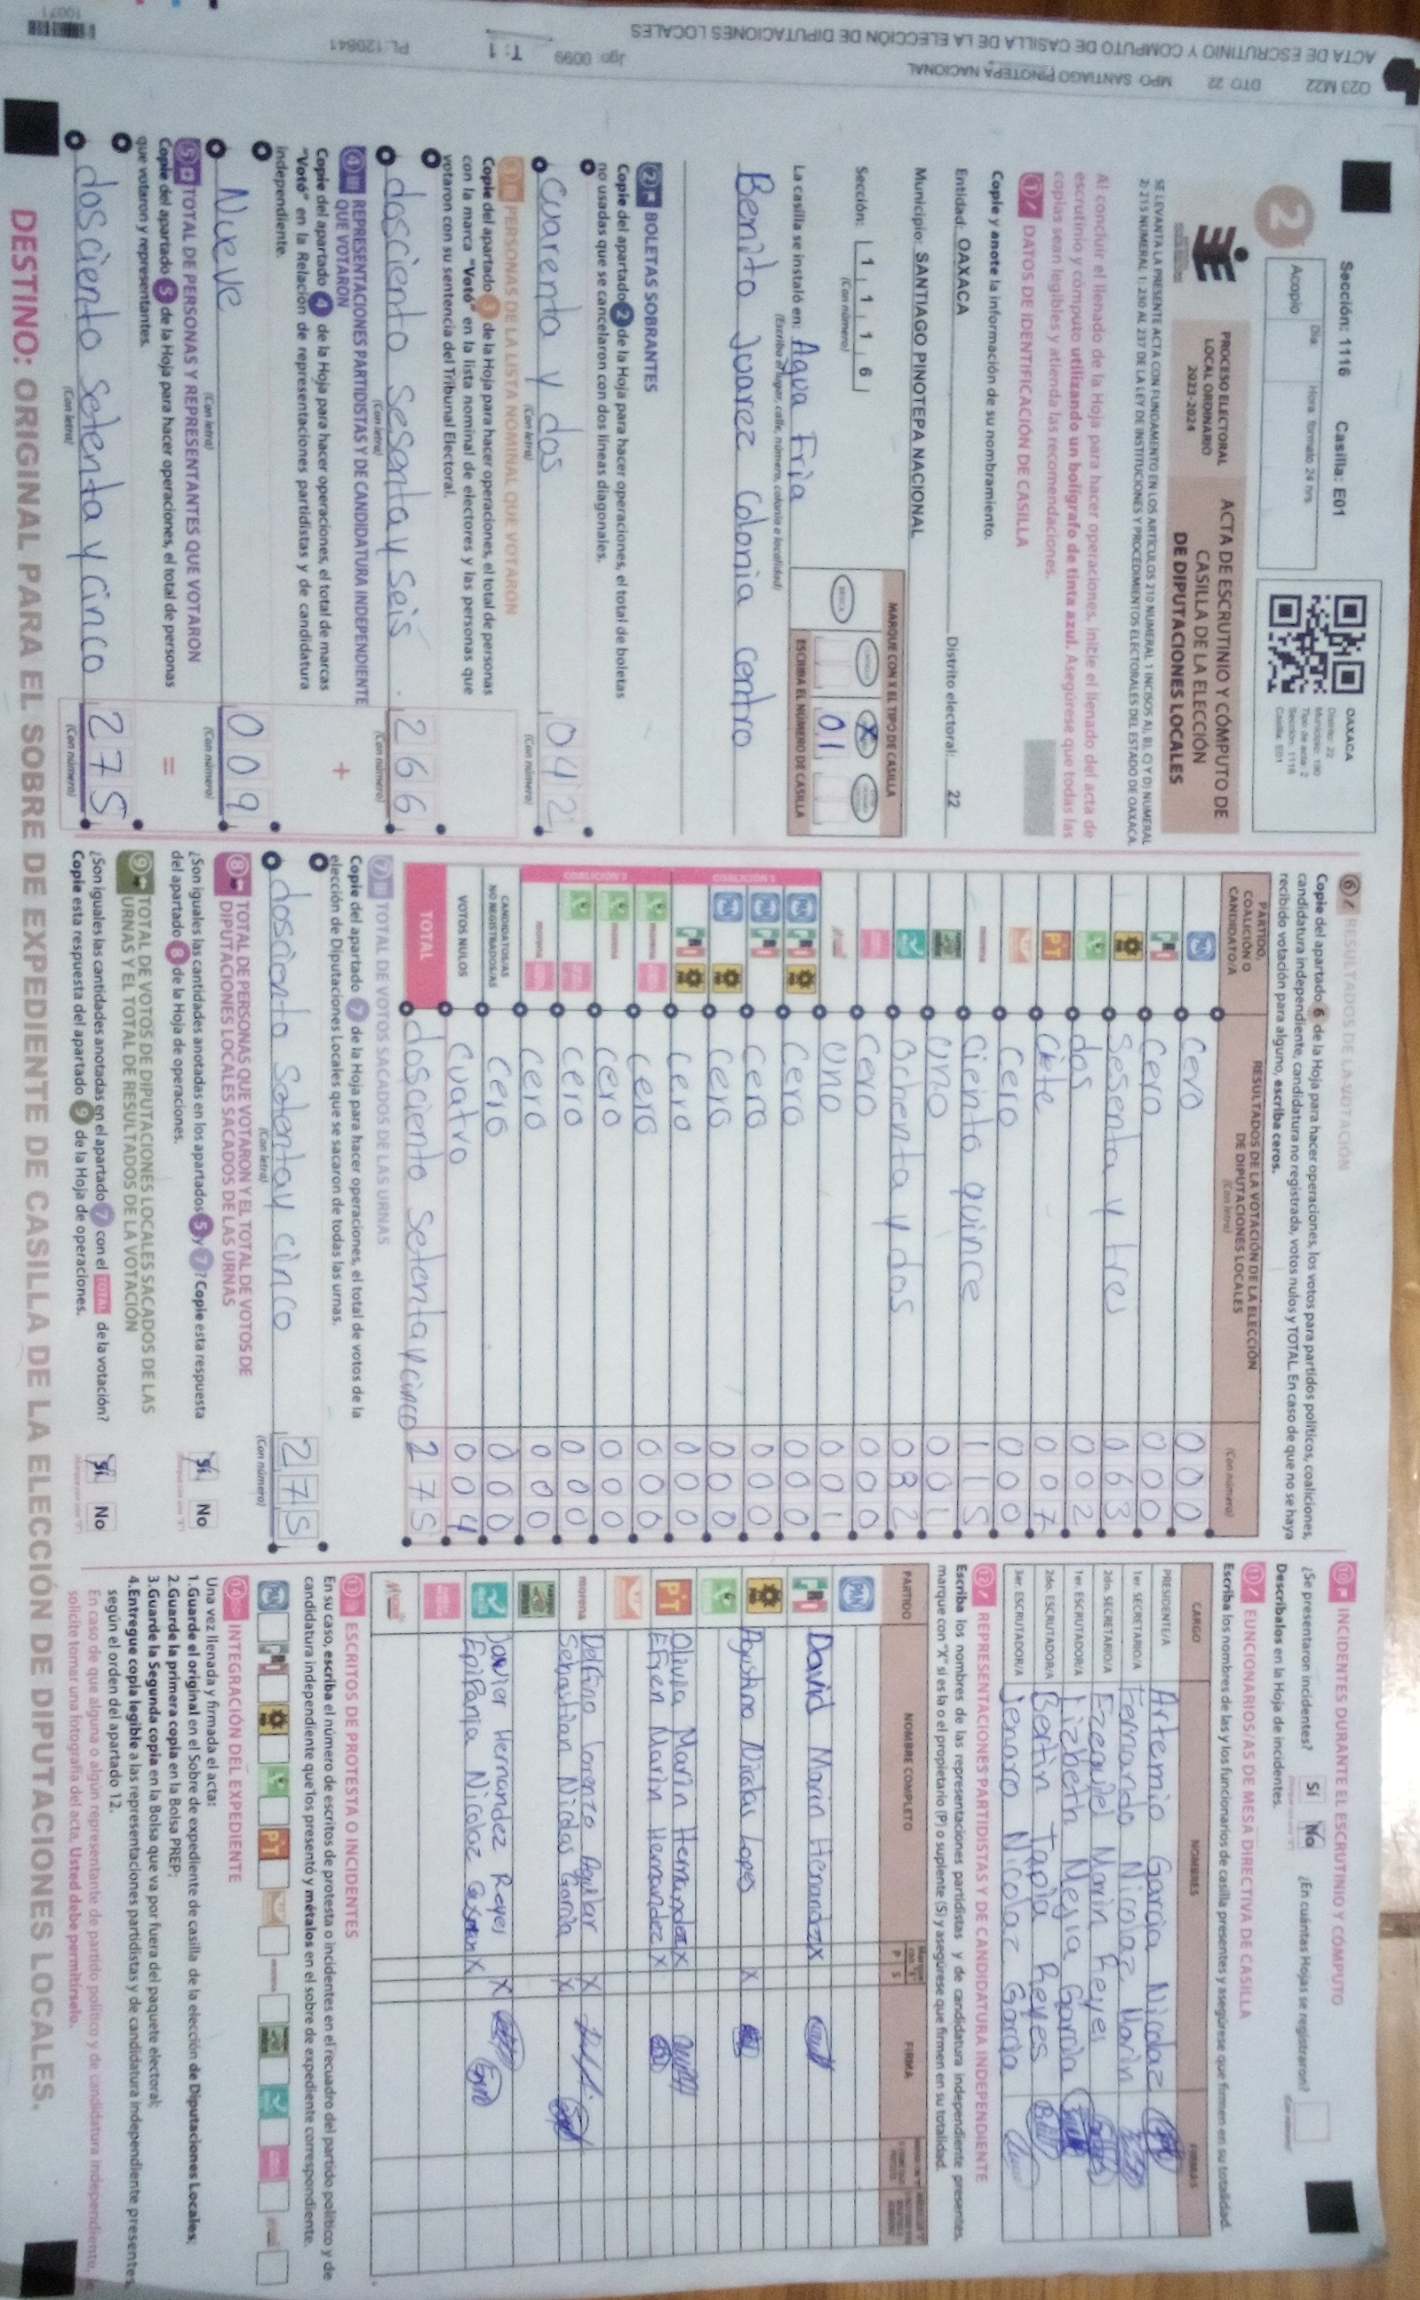 023 M22 DTO 22 MPO SANTIAGO PINOTEPA NACIONAL
ACTA DE ESCRUTINIO Y CÓMPUTO DE CASILLA DE LA ELECCIÓN DE DIPUTACIONES LOCALES
Jgo: 0099 T: 1 PL: 120841
10071
Sección: 1116 Casilla: E01
2
Acopio
Día
Hora formato 24 hrs.
OAXACA
Distrito: 22
Tipo de acta: 2
Sección: 1116
Casilla: E01
PROCESO ELECTORAL
LOCAL ORDINARIO
2023-2024
ACTA DE ESCRUTINIO Y CÓMPUTO DE
CASILLA DE LA ELECCIÓN
DE DIPUTACIONES LOCALES
SE LEVANTA LA PRESENTE ACTA CON FUNDAMENTO EN LOS ARTÍCULOS 210 NUMERAL 1 INCISOS A), B), C) Y D) NUMERAL
2; 215 NUMERAL 1; 230 AL 237 DE LA LEY DE INSTITUCIONES Y PROCEDIMIENTOS ELECTORALES DEL ESTADO DE OAXACA.
Al concluir el llenado de la Hoja para hacer operaciones, inicie el llenado del acta de
escrutinio y cómputo utilizando un bolígrafo de tinta azul. Asegúrese que todas las
copias sean legibles y atienda las recomendaciones.
1 DATOS DE IDENTIFICACIÓN DE CASILLA
Copie y anote la información de su nombramiento.
Entidad: OAXACA Distrito electoral: 22
Municipio: SANTIAGO PINOTEPA NACIONAL
Sección: 1 1 1 6
(Con número)
MARQUE CON X EL TIPO DE CASILLA
X
01
ESCRIBA EL NÚMERO DE CASILLA
La casilla se instaló en: Agua Fria
(Escriba el lugar, calle, número, colonia o localidad)
Benito Juarez Colonia Centro
2 BOLETAS SOBRANTES
Copie del apartado 2 de la Hoja para hacer operaciones, el total de boletas
no usadas que se cancelaron con dos líneas diagonales.
Cuarenta y dos 042
(Con letra) (Con número)
3 PERSONAS DE LA LISTA NOMINAL QUE VOTARON
Copie del apartado 3 de la Hoja para hacer operaciones, el total de personas
con la marca "Votó" en la lista nominal de electores y las personas que
votaron con su sentencia del Tribunal Electoral.
dosciento sesenta y seis. 266
(Con letra) (Con número)
4 REPRESENTACIONES PARTIDISTAS Y DE CANDIDATURA INDEPENDIENTE
QUE VOTARON
+
Copie del apartado 4 de la Hoja para hacer operaciones, el total de marcas
"Votó" en la Relación de representaciones partidistas y de candidatura
independiente.
Nueve 009
(Con letra) (Con número)
5 TOTAL DE PERSONAS Y REPRESENTANTES QUE VOTARON
=
Copie del apartado 5 de la Hoja para hacer operaciones, el total de personas
que votaron y representantes.
dosciento setenta y cinco 275
(Con letra) (Con número)
6 RESULTADOS DE LA VOTACIÓN
Copie del apartado 6 de la Hoja para hacer operaciones, los votos para partidos políticos, coaliciones,
candidatura independiente, candidatura no registrada, votos nulos y TOTAL. En caso de que no se haya
recibido votación para alguno, escriba ceros.
PARTIDO,
COALICIÓN O
CANDIDATO/A
RESULTADOS DE LA VOTACIÓN DE LA ELECCIÓN
DE DIPUTACIONES LOCALES
(Con letra) (Con número)
PAN cero 000
PRI cero 000
PRD sesenta y tres 063
dos 002
PT ciete 007
cero 000
morena ciento quince 115
uno 001
Ochenta y dos 082
cero 000
uno 001
COALICIÓN 1
cero 000
cero 000
cero 000
cero 000
COALICIÓN 2
cero 000
cero 000
cero 000
cero 000
CANDIDATOS/AS
NO REGISTRADOS/AS
cero 000
VOTOS NULOS cuatro 004
TOTAL dosciento setenta y cinco 275
7 TOTAL DE VOTOS SACADOS DE LAS URNAS
Copie del apartado 7 de la Hoja para hacer operaciones, el total de votos de la
elección de Diputaciones Locales que se sacaron de todas las urnas.
dosciento setenta y cinco 275
(Con letra) (Con número)
8 TOTAL DE PERSONAS QUE VOTARON Y EL TOTAL DE VOTOS DE
DIPUTACIONES LOCALES SACADOS DE LAS URNAS
¿Son iguales las cantidades anotadas en los apartados 5 y 7? Copie esta respuesta
del apartado 8 de la Hoja de operaciones.
Sí No
9 TOTAL DE VOTOS DE DIPUTACIONES LOCALES SACADOS DE LAS
URNAS Y EL TOTAL DE RESULTADOS DE LA VOTACIÓN
¿Son iguales las cantidades anotadas en el apartado 7 con el TOTAL de la votación?
Copie esta respuesta del apartado 9 de la Hoja de operaciones.
Sí No
10 INCIDENTES DURANTE EL ESCRUTINIO Y CÓMPUTO
¿Se presentaron incidentes? Sí No ¿En cuántas Hojas se registraron?
Descríbalos en la Hoja de incidentes.
11 FUNCIONARIOS/AS DE MESA DIRECTIVA DE CASILLA
Escriba los nombres de las y los funcionarios de casilla presentes y asegúrese que firmen en su totalidad.
CARGO NOMBRES FIRMAS
PRESIDENTE/A Artemio Garcia Nicolaz
1er. SECRETARIO/A Fernando Nicolaz Marin
2do. SECRETARIO/A Ezequiel Marin Reyes
1er. ESCRUTADOR/A Lizbeth Mejia Garcia
2do. ESCRUTADOR/A Bertin Tapia Reyes
3er. ESCRUTADOR/A Jenaro Nicolaz Garcia
12 REPRESENTACIONES PARTIDISTAS Y DE CANDIDATURA INDEPENDIENTE
Escriba los nombres de las representaciones partidistas y de candidatura independiente presentes,
marque con "X" si es la o el propietario (P) o suplente (S) y asegúrese que firmen en su totalidad.
PARTIDO NOMBRE COMPLETO P S FIRMA
PAN
PRI David Marin Hernandez X
PRD Agustina Nicolas Lopes X
PT Olivia Marin Hernandez X
Efren Marin Hernandez X
morena Delfino Lorenzo Aguilar X
Sebastian Nicolas Garcia X
Javier Hernandez Reyes X
Epifania Nicolaz X
13 ESCRITOS DE PROTESTA O INCIDENTES
En su caso, escriba el número de escritos de protesta o incidentes en el recuadro del partido político y de
candidatura independiente que los presentó y métalos en el sobre de expediente correspondiente.
PAN PT morena
14 INTEGRACIÓN DEL EXPEDIENTE
Una vez llenada y firmada el acta:
1.Guarde el original en el Sobre de expediente de casilla de la elección de Diputaciones Locales;
2.Guarde la primera copia en la Bolsa PREP;
3.Guarde la Segunda copia en la Bolsa que va por fuera del paquete electoral;
4.Entregue copia legible a las representaciones partidistas y de candidatura independiente presentes,
según el orden del apartado 12.
En caso de que alguna o algún representante de partido político y de candidatura independiente, le
solicite tomar una fotografía del acta, Usted debe permitírselo.
DESTINO: ORIGINAL PARA EL SOBRE DE EXPEDIENTE DE CASILLA DE LA ELECCIÓN DE DIPUTACIONES LOCALES.